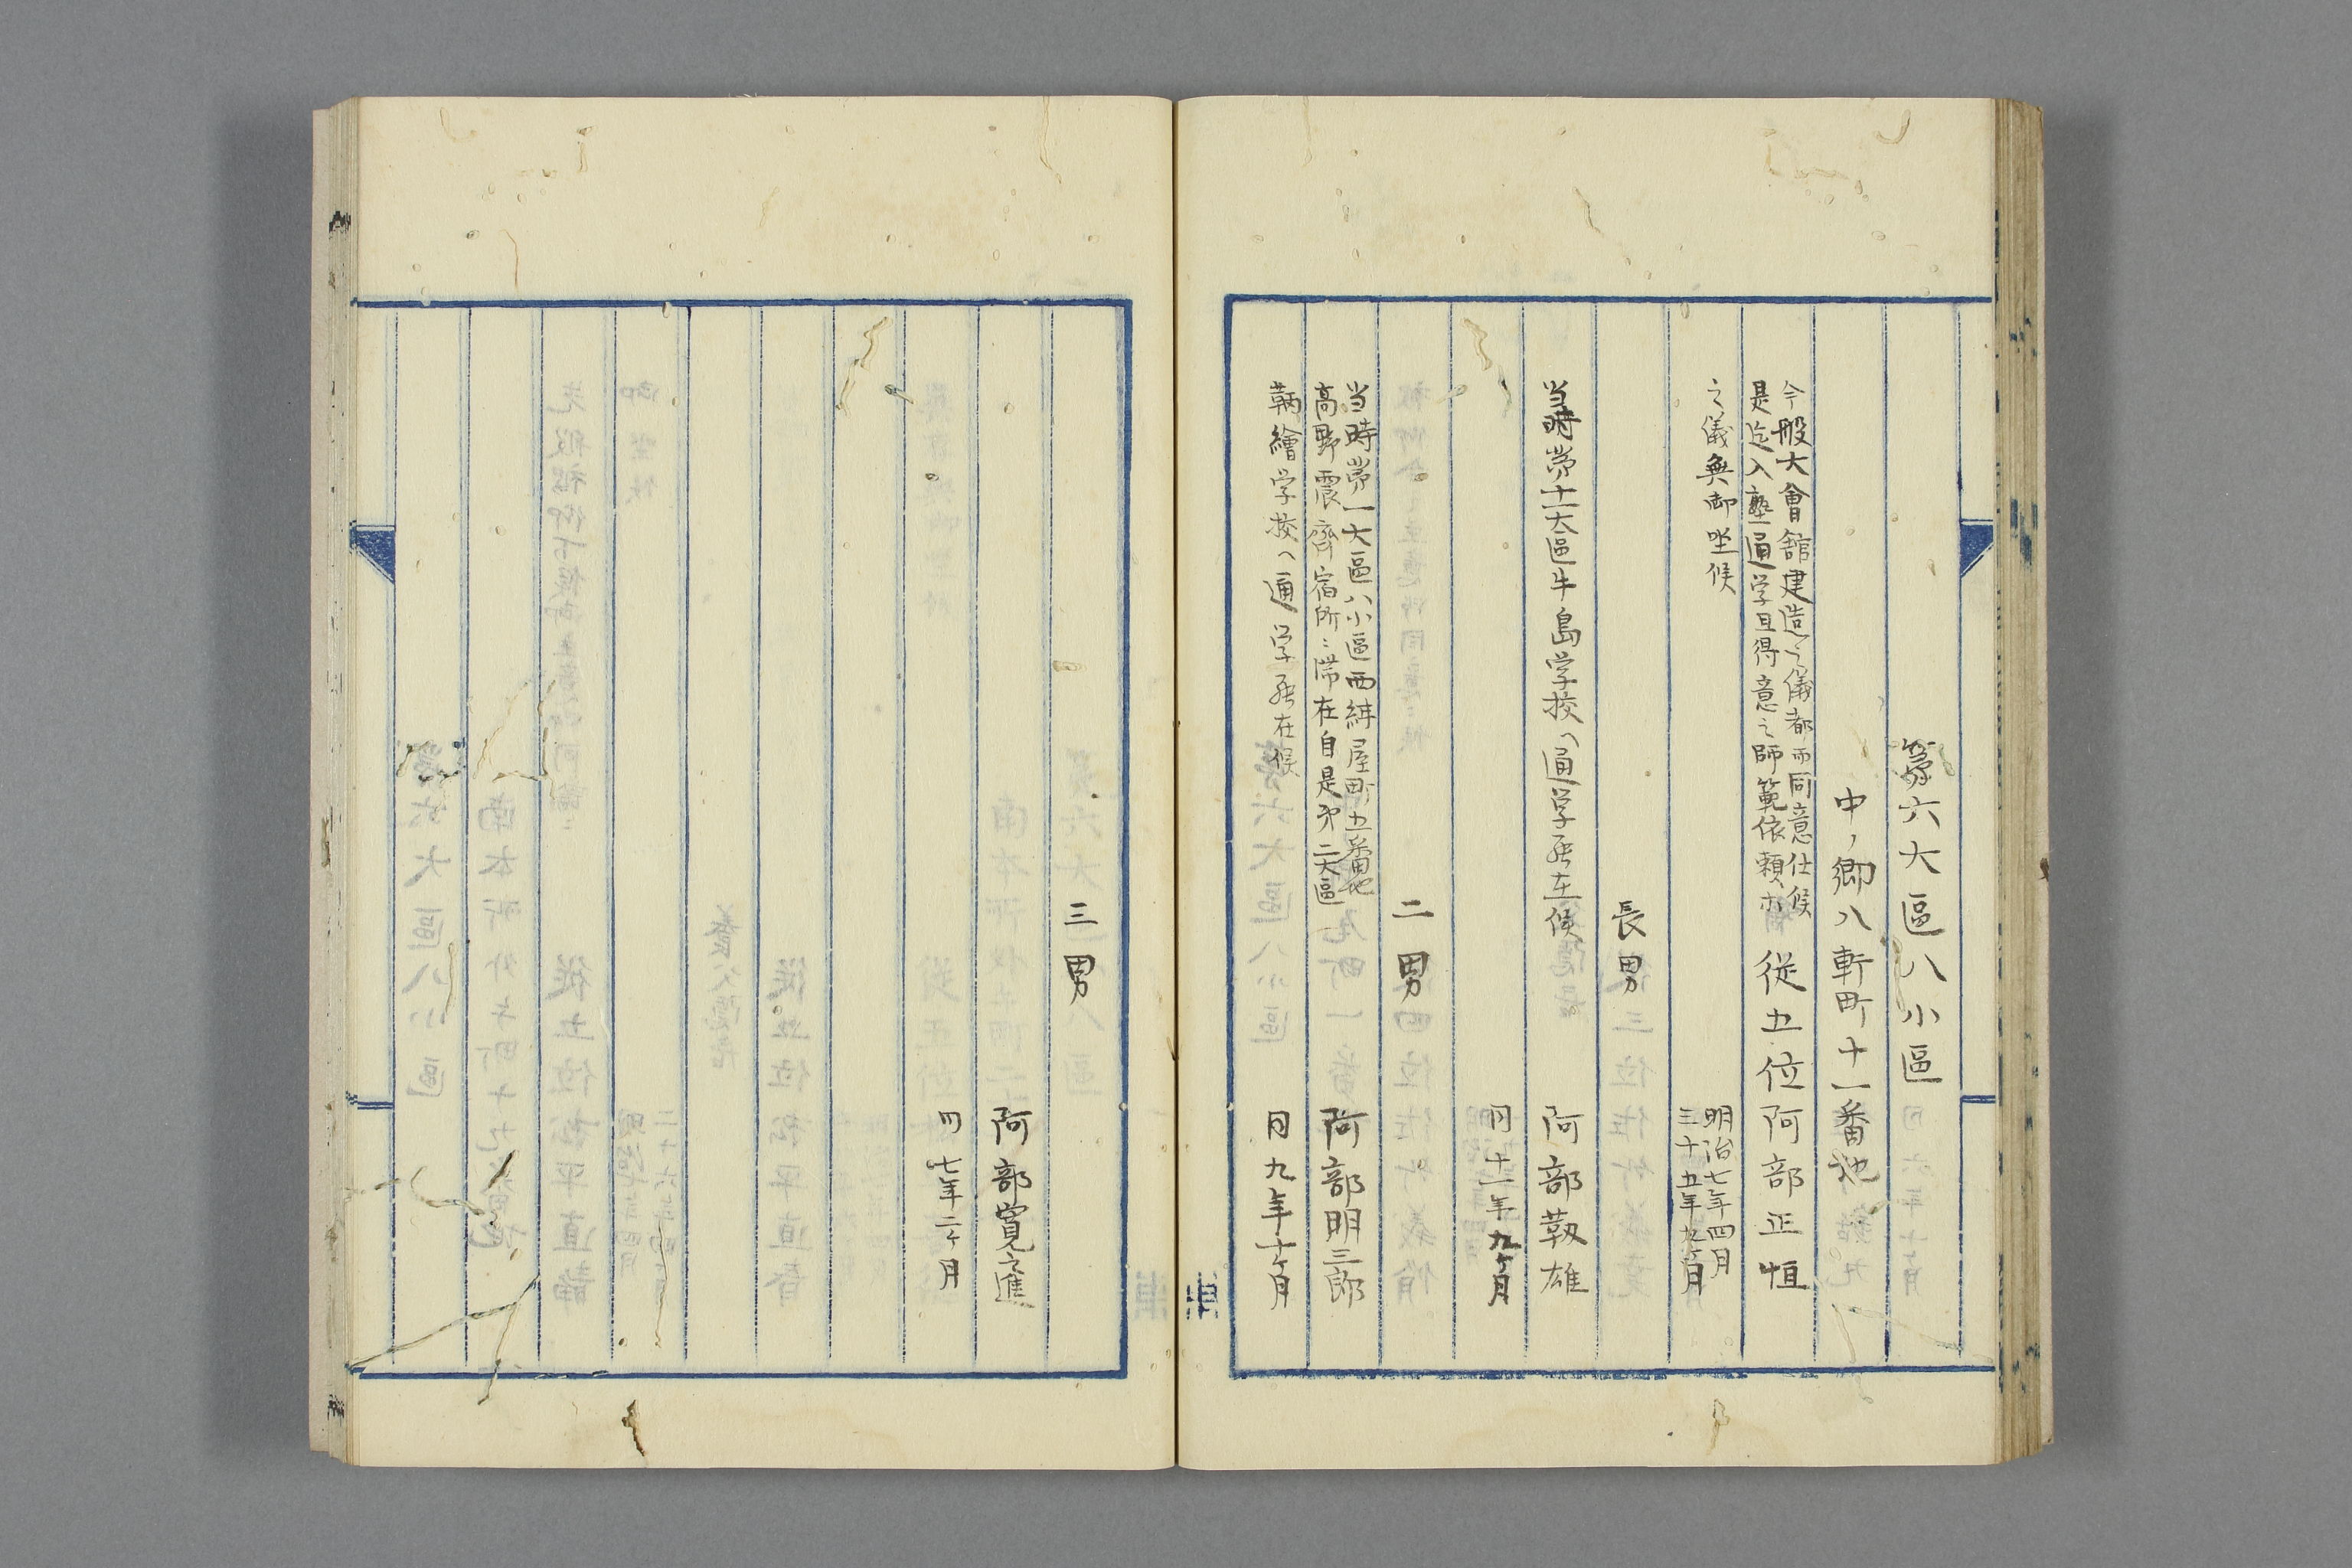 第六大區八小區
中ノ郷八軒町十一番地
今般大會舘建造之儀都而同意仕候
是迄入塾通学且得意之師範依頼等
従五位阿部正恒
之儀無御坐候
明治七年四月
三十五年九ヶ月
長男
当時第十一大區牛島学校ヘ通学罷在候
阿部靱雄
同十一年九ヶ月
二男
当時第一大區八小區西紺屋町五番地
高野震齊宿所ニ滞在自是第二大區
阿部明三郎
鞆繪学校ヘ通学罷在候
同九年十ヶ月
三男
阿部寛之進
同七年二ヶ月